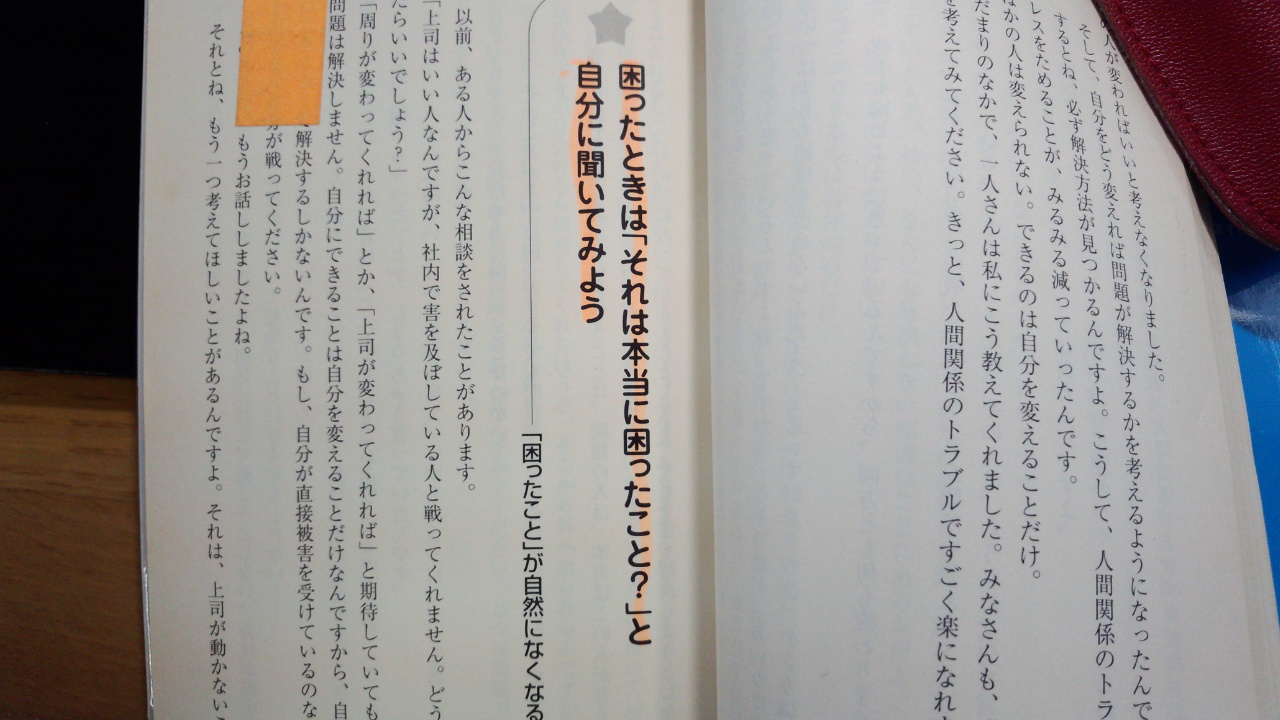 人が変わればいいと考えなくなりました。
そして、自分をどう変えれば問題が解決するかを考えるようになったんで
すよ。こうして、人間関係のトラ
するとね、必ず解決方法が見つかるんですよ。こうして、人間関係のトラ
レスをためることが、みるみる減っていったんです。
ほかの人は変えられない。できるのは自分を変えることだけ。
だまりのなかで、一人さんは私にこう教えてくれました。みなさんも、
を考えてみてください。きっと、人間関係のトラブルですごく楽になれ
困ったときは「それは本当に困ったこと？」と
自分に聞いてみよう
「困ったこと」が自然になくなる
以前、ある人からこんな相談をされたことがあります。
「上司はいい人なんですが、社内で害を及ぼしている人と戦ってくれません。どう
たらいいでしょう？」
「周りが変わってくれれば」とか、「上司が変わってくれれば」と期待していても
問題は解決しません。自分にできることは自分を変えることだけなんですから、自
解決するしかないんです。もし、自分が直接被害を受けているのな
が戦ってください。
もうお話ししましたよね。
それとね、もう一つ考えてほしいことがあるんですよ。それは、上司が動かない